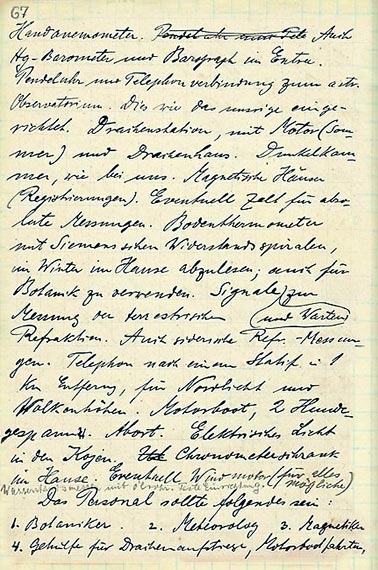 67
Handanemometer. Pendeluhr und Tele Auch
Hg-Barometer und Barograph im Entree.
Pendeluhr und Telephonverbindung zum astr.
Observatorium. Dies wie das unsrige einge-
richtet. Drachenstation, mit Motor (Som
mer) und Drachenhaus. Dunkelkam-
mer, wie bei uns. Magnetische Häuser
(Registrierungen). Eventuell Zelt für abso-
lute Messungen. Bodenthermometer
mit Siemensschen Widerstandsspiralen,
im Winter im Hause abzulesen; auch für
Botanik zu verwenden. Signale zur
Messung der terrestrischen (und Warten)
Refraktion. Auch siderische Refr.-Messun-
gen. Telephon nach einem Stativ in 1
Km Entferng, für Nordlicht und
Wolkenhöhen. Motorboot, 2 Hunde-
gespanne. Abort. Elektrisches Licht
in den Kojen. Chronometerschrank
im Hause. Eventuell Windmotor (für alles
mögliche)
Das Personal sollte folgendes sein:
1. Botaniker. 2. Meteorolog 3. Magnetiker
4. Gehülfe für Drachenaufstiege, Motorbootfahrten,